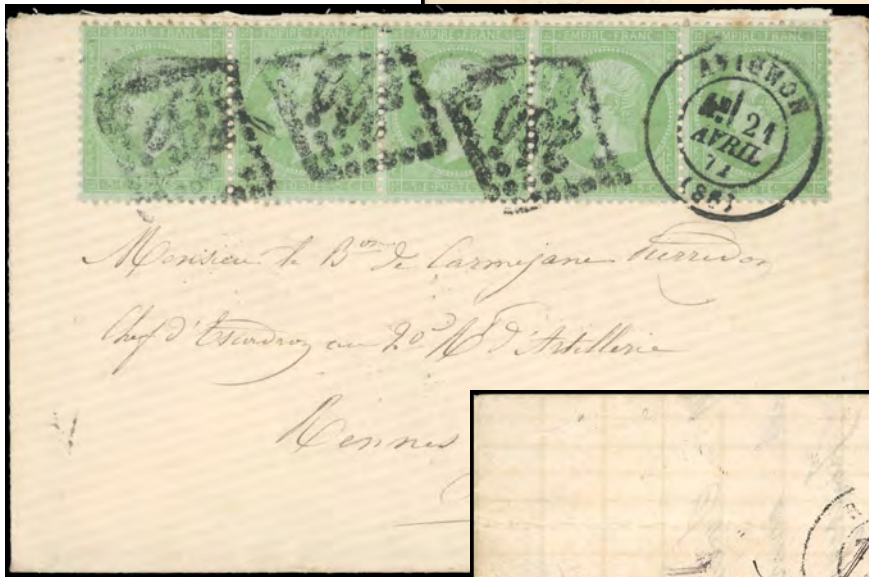 EMPIRE FRANC EMPIRE FRANC EMPIRE FRANC EMPIRE FRANC EMPIRE FRANC
AVIGNON
21
AVRIL
(86)
Monsieur le B^on de Carmejane Pierredon
Chef d'Escadron au 20^e R^t d'Artillerie
Rennes